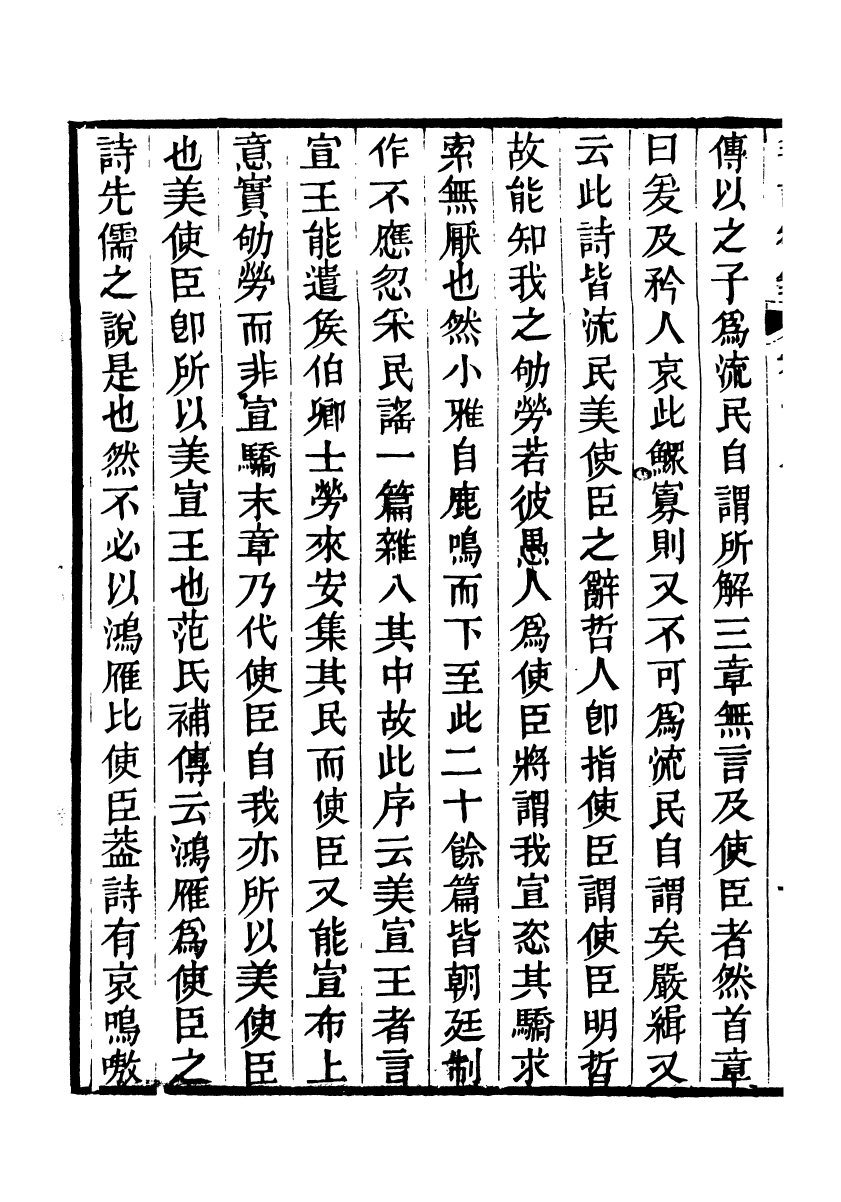 傳以之子爲流民自謂所解三章無言及使臣者然首章
曰爰及矜人哀此鰥寡則又不可爲流民自謂矣嚴緝又
云此詩皆流民美使臣之辭哲人卽指使臣謂使臣明哲
故能知我之劬勞若彼愚人爲使臣將謂我宣恣其驕求
索無厭也然小雅自鹿鳴而下至此二十餘篇皆朝廷制
作不應忽采民謠一篇雜入其中故此序云美宣王者言
宣王能遣矦伯卿士勞來安集其民而使臣又能宣布上
意實劬勞而非宣驕末章乃代使臣自我亦所以美使臣
也美使臣卽所以美宣王也范氏補傳云鴻雁爲使臣之
詩先儒之說是也然不必以鴻雁比使臣葢詩有哀鳴嗷